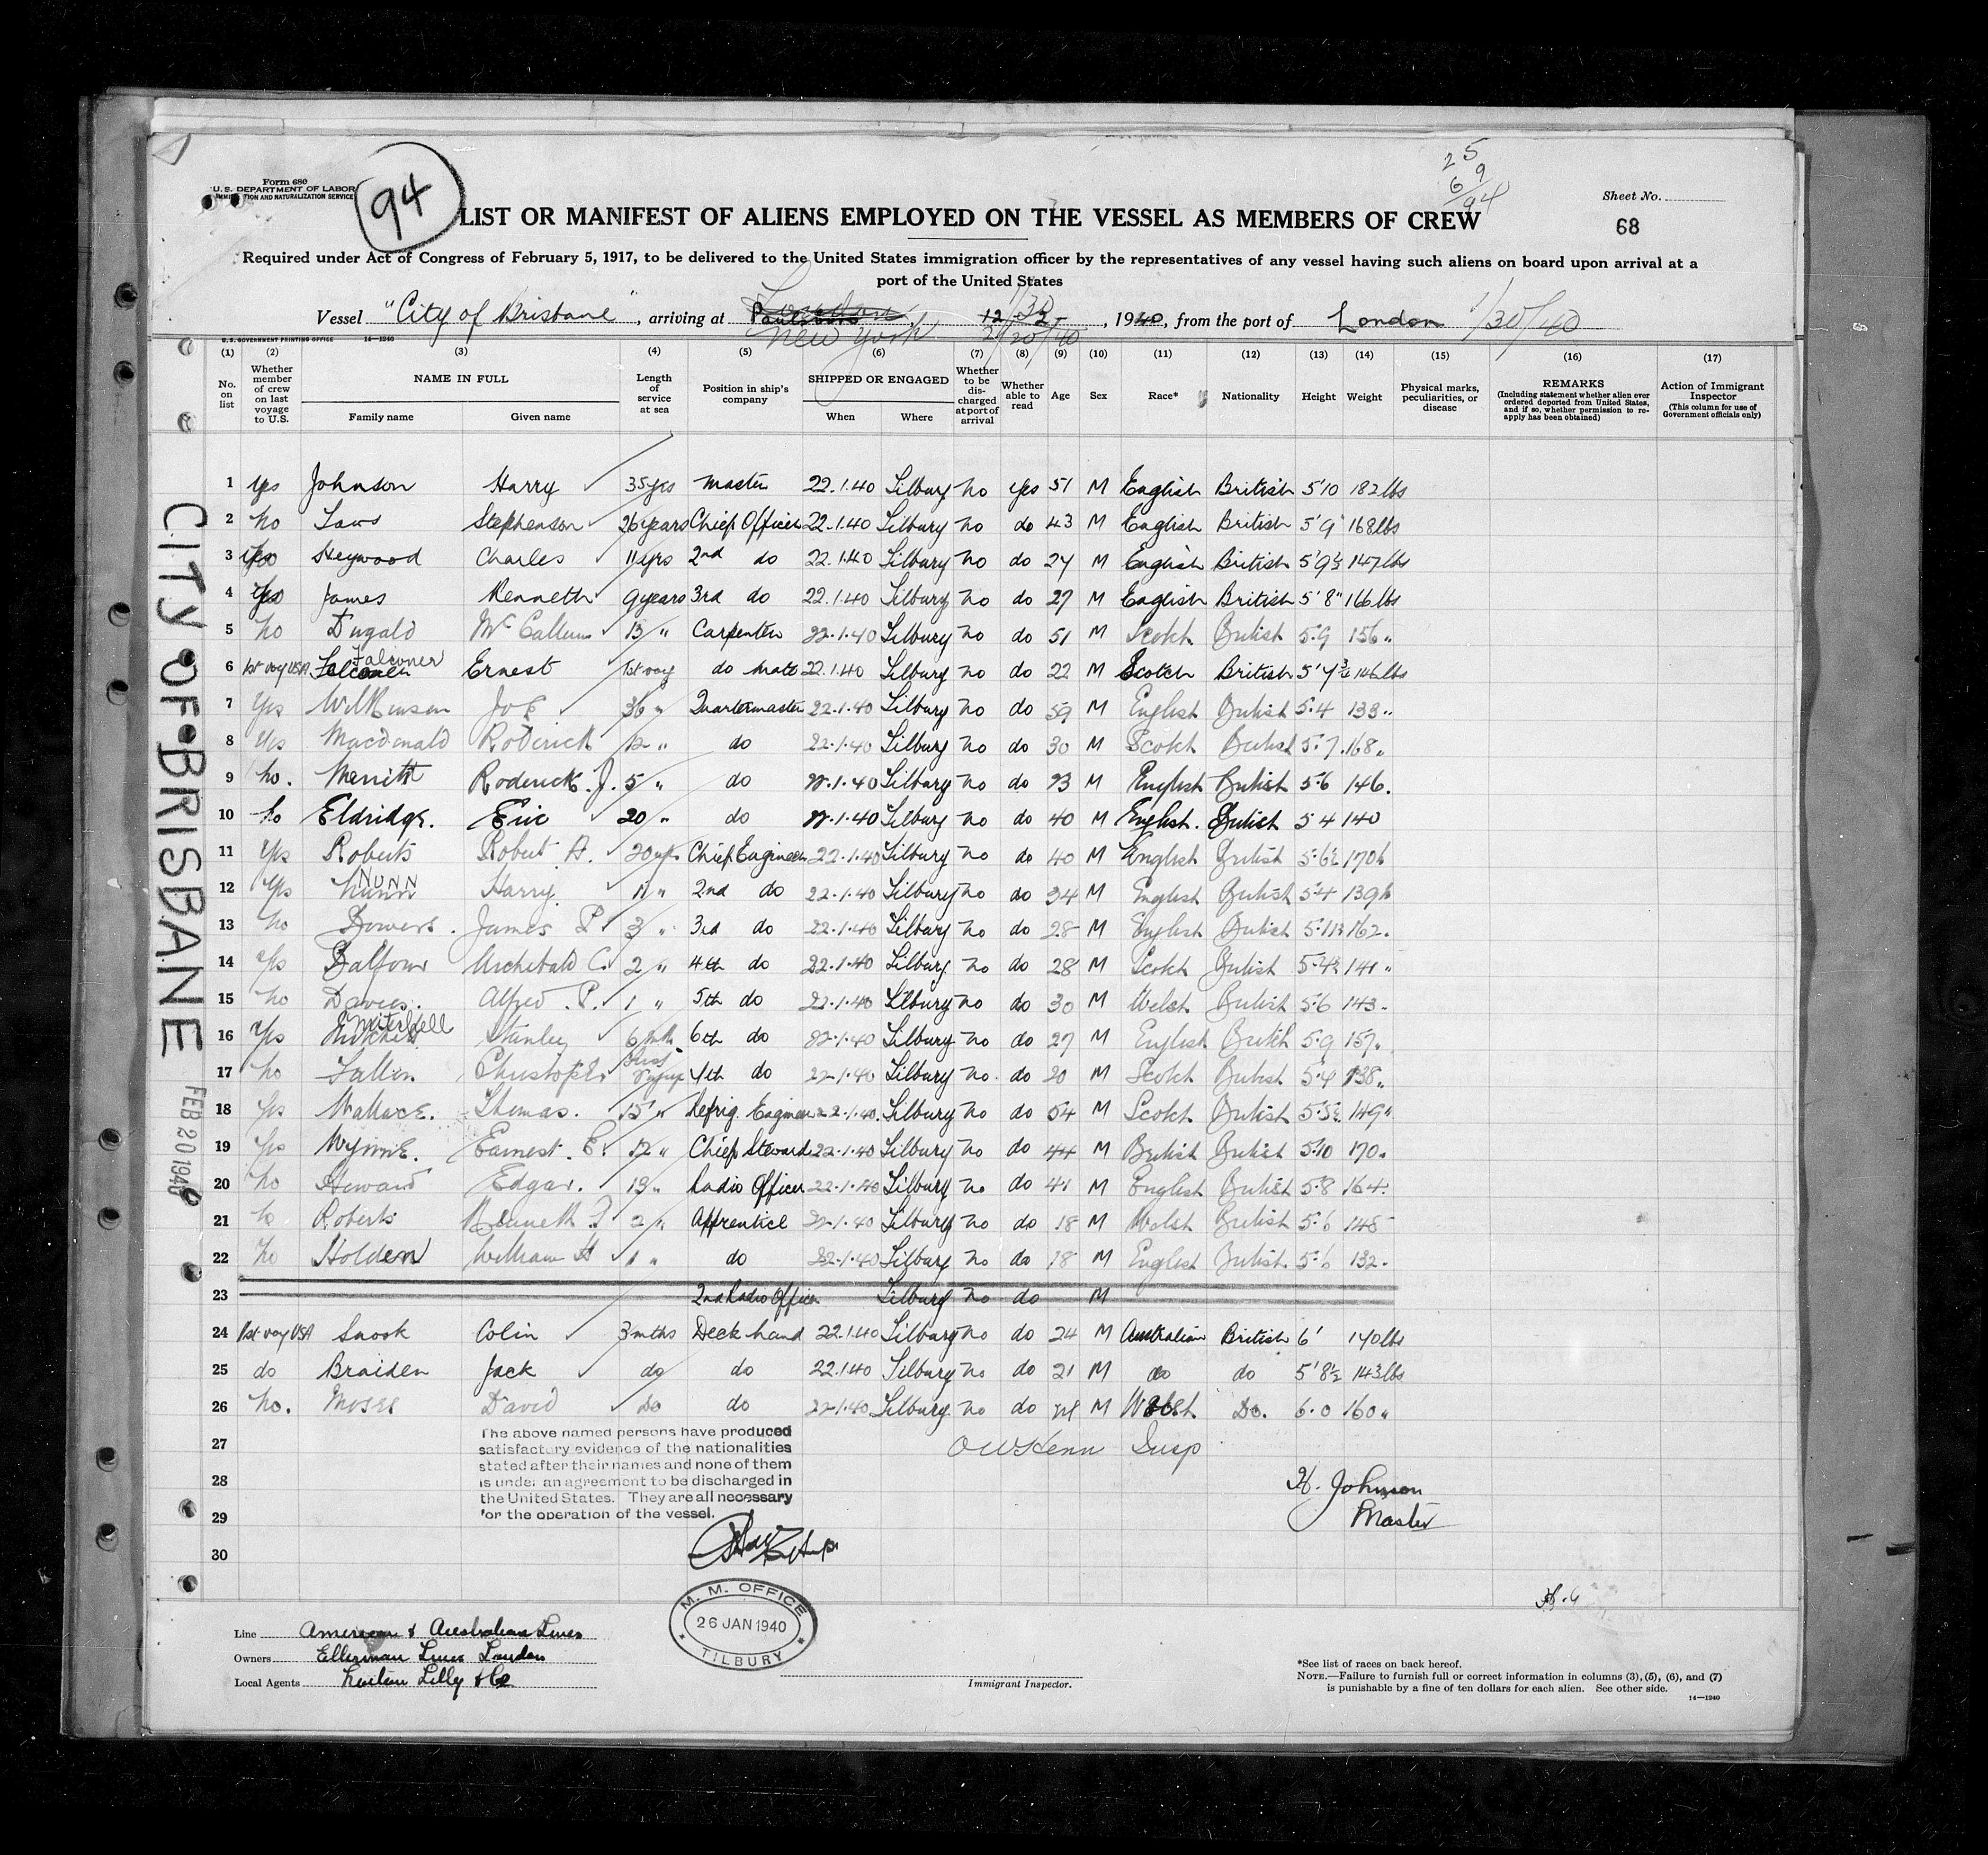 Form 680
U.S. DEPARTMENT OF LABOR
IMMIGRATION AND NATURALIZATION SERVICE
94
25
69
94
Sheet No.
68
LIST OR MANIFEST OF ALIENS EMPLOYED ON THE VESSEL AS MEMBERS OF CREW
Required under Act of Congress of February 5, 1917, to be delivered to the United States immigration officer by the representatives of any vessel having such aliens on board upon arrival at a
port of the United States
Vessel "City of Brisbane", arriving at London New York 2/20/40, 1940, from the port of London 1/30/40
U.S. GOVERNMENT PRINTING OFFICE 14—1240
(1) (2) (3) (4) (5) (6) (7) (8) (9) (10) (11) (12) (13) (14) (15) (16) (17)
No. on list
Whether member of crew on last voyage to U.S.
NAME IN FULL
Family name Given name
Length of service at sea
Position in ship's company
SHIPPED OR ENGAGED
When Where
Whether to be discharged at port of arrival
Whether able to read
Age
Sex
Race*
Nationality
Height
Weight
Physical marks, peculiarities, or disease
REMARKS
(Including statement whether alien ever ordered deported from United States, and if so, whether permission to re-apply has been obtained)
Action of Immigrant Inspector
(This column for use of Government officials only)
1 yes Johnson Harry 35yrs Master 22.1.40 Tilbury no yes 51 M English British 5'10 182lbs
2 no Laws Stephenson 26years Chief Officer 22.1.40 Tilbury no do 43 M English British 5'9" 168lbs
3 yes Heywood Charles 11yrs 2nd do 22.1.40 Tilbury no do 27 M English British 5'9½ 147lbs
4 Yes James Kenneth 9years 3rd do 22.1.40 Tilbury no do 27 M English British 5'8" 166lbs
5 no Dugald McCallum 13 " Carpenter 22.1.40 Tilbury no do 51 M Scotch British 5.9 156 "
6 1st voy USA Falconer Ernest 1st voy do mate 22.1.40 Tilbury no do 22 M Scotch British 146lbs
7 Yes Wilkinson Joe 36 " Quartermaster 22.1.40 Tilbury no do 59 M English British 5.4 133 "
8 Yes Macdonald Roderick 12 " do 22.1.40 Tilbury no do 30 M Scotch British 5.7 168 "
9 no. Merritt Roderick J. 5 " do 22.1.40 Tilbury no do 23 M English British 5.6 146.
10 no Eldridge. Eric 20 " do 22.1.40 Tilbury no do 40 M English. British 5 4 140
11 Yes Roberts Robert H. 20 yrs Chief Engineer 22.1.40 Tilbury no do 40 M English British 5.6½ 170 lb
12 Yes Nunn NUNN Harry. 11 " 2nd do 22.1.40 Tilbury no do 34 M English British 5.4 139 lb
13 no Bowers. James P 3 " 3rd do 22.1.40 Tilbury no do 28 M English British 162.
14 Yes Balfour Archibald C. 2 " 4th do 22.1.40 Tilbury no do 28 M Scotch British 5.4½ 141 "
15 no Davies. Alfred. P. 1 " 5th do 22.1.40 Tilbury no do 30 M Welsh British 5.6 143.
16 Yes Mitchell Stanley 6 mth 6th do 22.1.40 Tilbury no do 27 M English British 5.9 157.
17 no Fallon Christopher First Voyage 7th do 22.1.40 Tilbury no. do 20 M Scotch British 5.4 138 "
18 Yes Wallace. Thomas. 15 " Refrig. Engineer 22.1.40. Tilbury no do 54 M Scotch British 5.5½ 149 "
19 Yes Wynne. Earnest. E. 12 " Chief Steward 22.1.40 Tilbury no do 44 M British British 5.10 170.
20 no Howard Edgar. 13 " Radio Officer 22.1.40 Tilbury no do 41 M English British 5.8 164.
21 no Roberts Kenneth 2 " Apprentice 22.1.40 Tilbury no do 18 M Welsh British 5.6 148
22 no Holden William H 1 " do 22.1.40 Tilbury no do 18 M English British. 5.6 132.
23 2nd Radio Officer Tilbury no do M
24 1st voy USA Snook Colin 3mths Deck hand 22.1.40 Tilbury no do 24 M Australian British 6' 170lbs
25 do Braiden Jack do do 22.1.40 Tilbury no do 21 M do do 5'8½ 143lbs
26 no. Moses David do do 22.1.40 Tilbury no do 21 M Welsh Do. 6.0 160 "
27
28
29
30
The above named persons have produced
satisfactory evidence of the nationalities
stated after their names and none of them
is under an agreement to be discharged in
the United States. They are all necessary
for the operation of the vessel.
Insp
H. Johnson
Master
M. M. OFFICE
26 JAN 1940
TILBURY
CITY OF BRISBANE
FEB 20 1940
Line American & Australian Lines
Owners Ellerman Lines London
Local Agents Norton Lilly & Co
Immigrant Inspector.
*See list of races on back hereof.
NOTE.—Failure to furnish full or correct information in columns (3), (5), (6), and (7)
is punishable by a fine of ten dollars for each alien. See other side.
14—1240